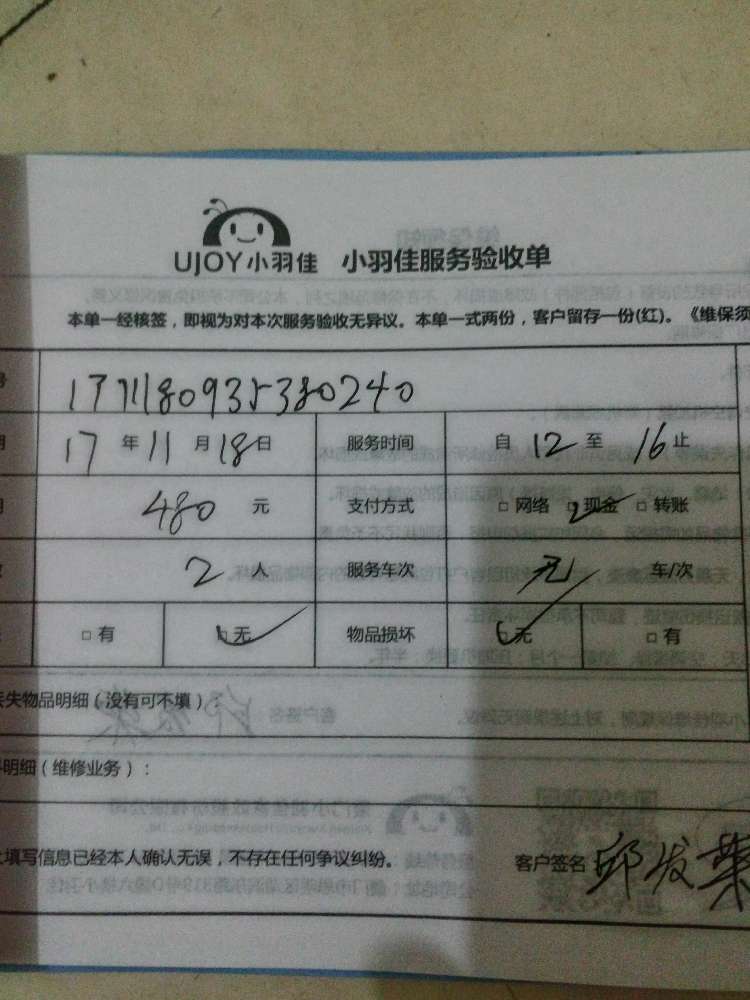 UJOY小羽佳 小羽佳服务验收单
本单一经核签，即视为对本次服务验收无异议。本单一式两份，客户留存一份(红)。《维保须
号 171118093538​0240
期 17 年 11 月 18 日 服务时间 自 12 至 16 止
480 元 支付方式 □ 网络 □ 现金 □ 转账
2 人 服务车次 无 车/次
□ 有 □ 无 物品损坏 □ 无 □ 有
丢失物品明细（没有可不填）：
明细（维修业务）：
上填写信息已经本人确认无误，不存在任何争议纠纷。 客户签名 邱发荣